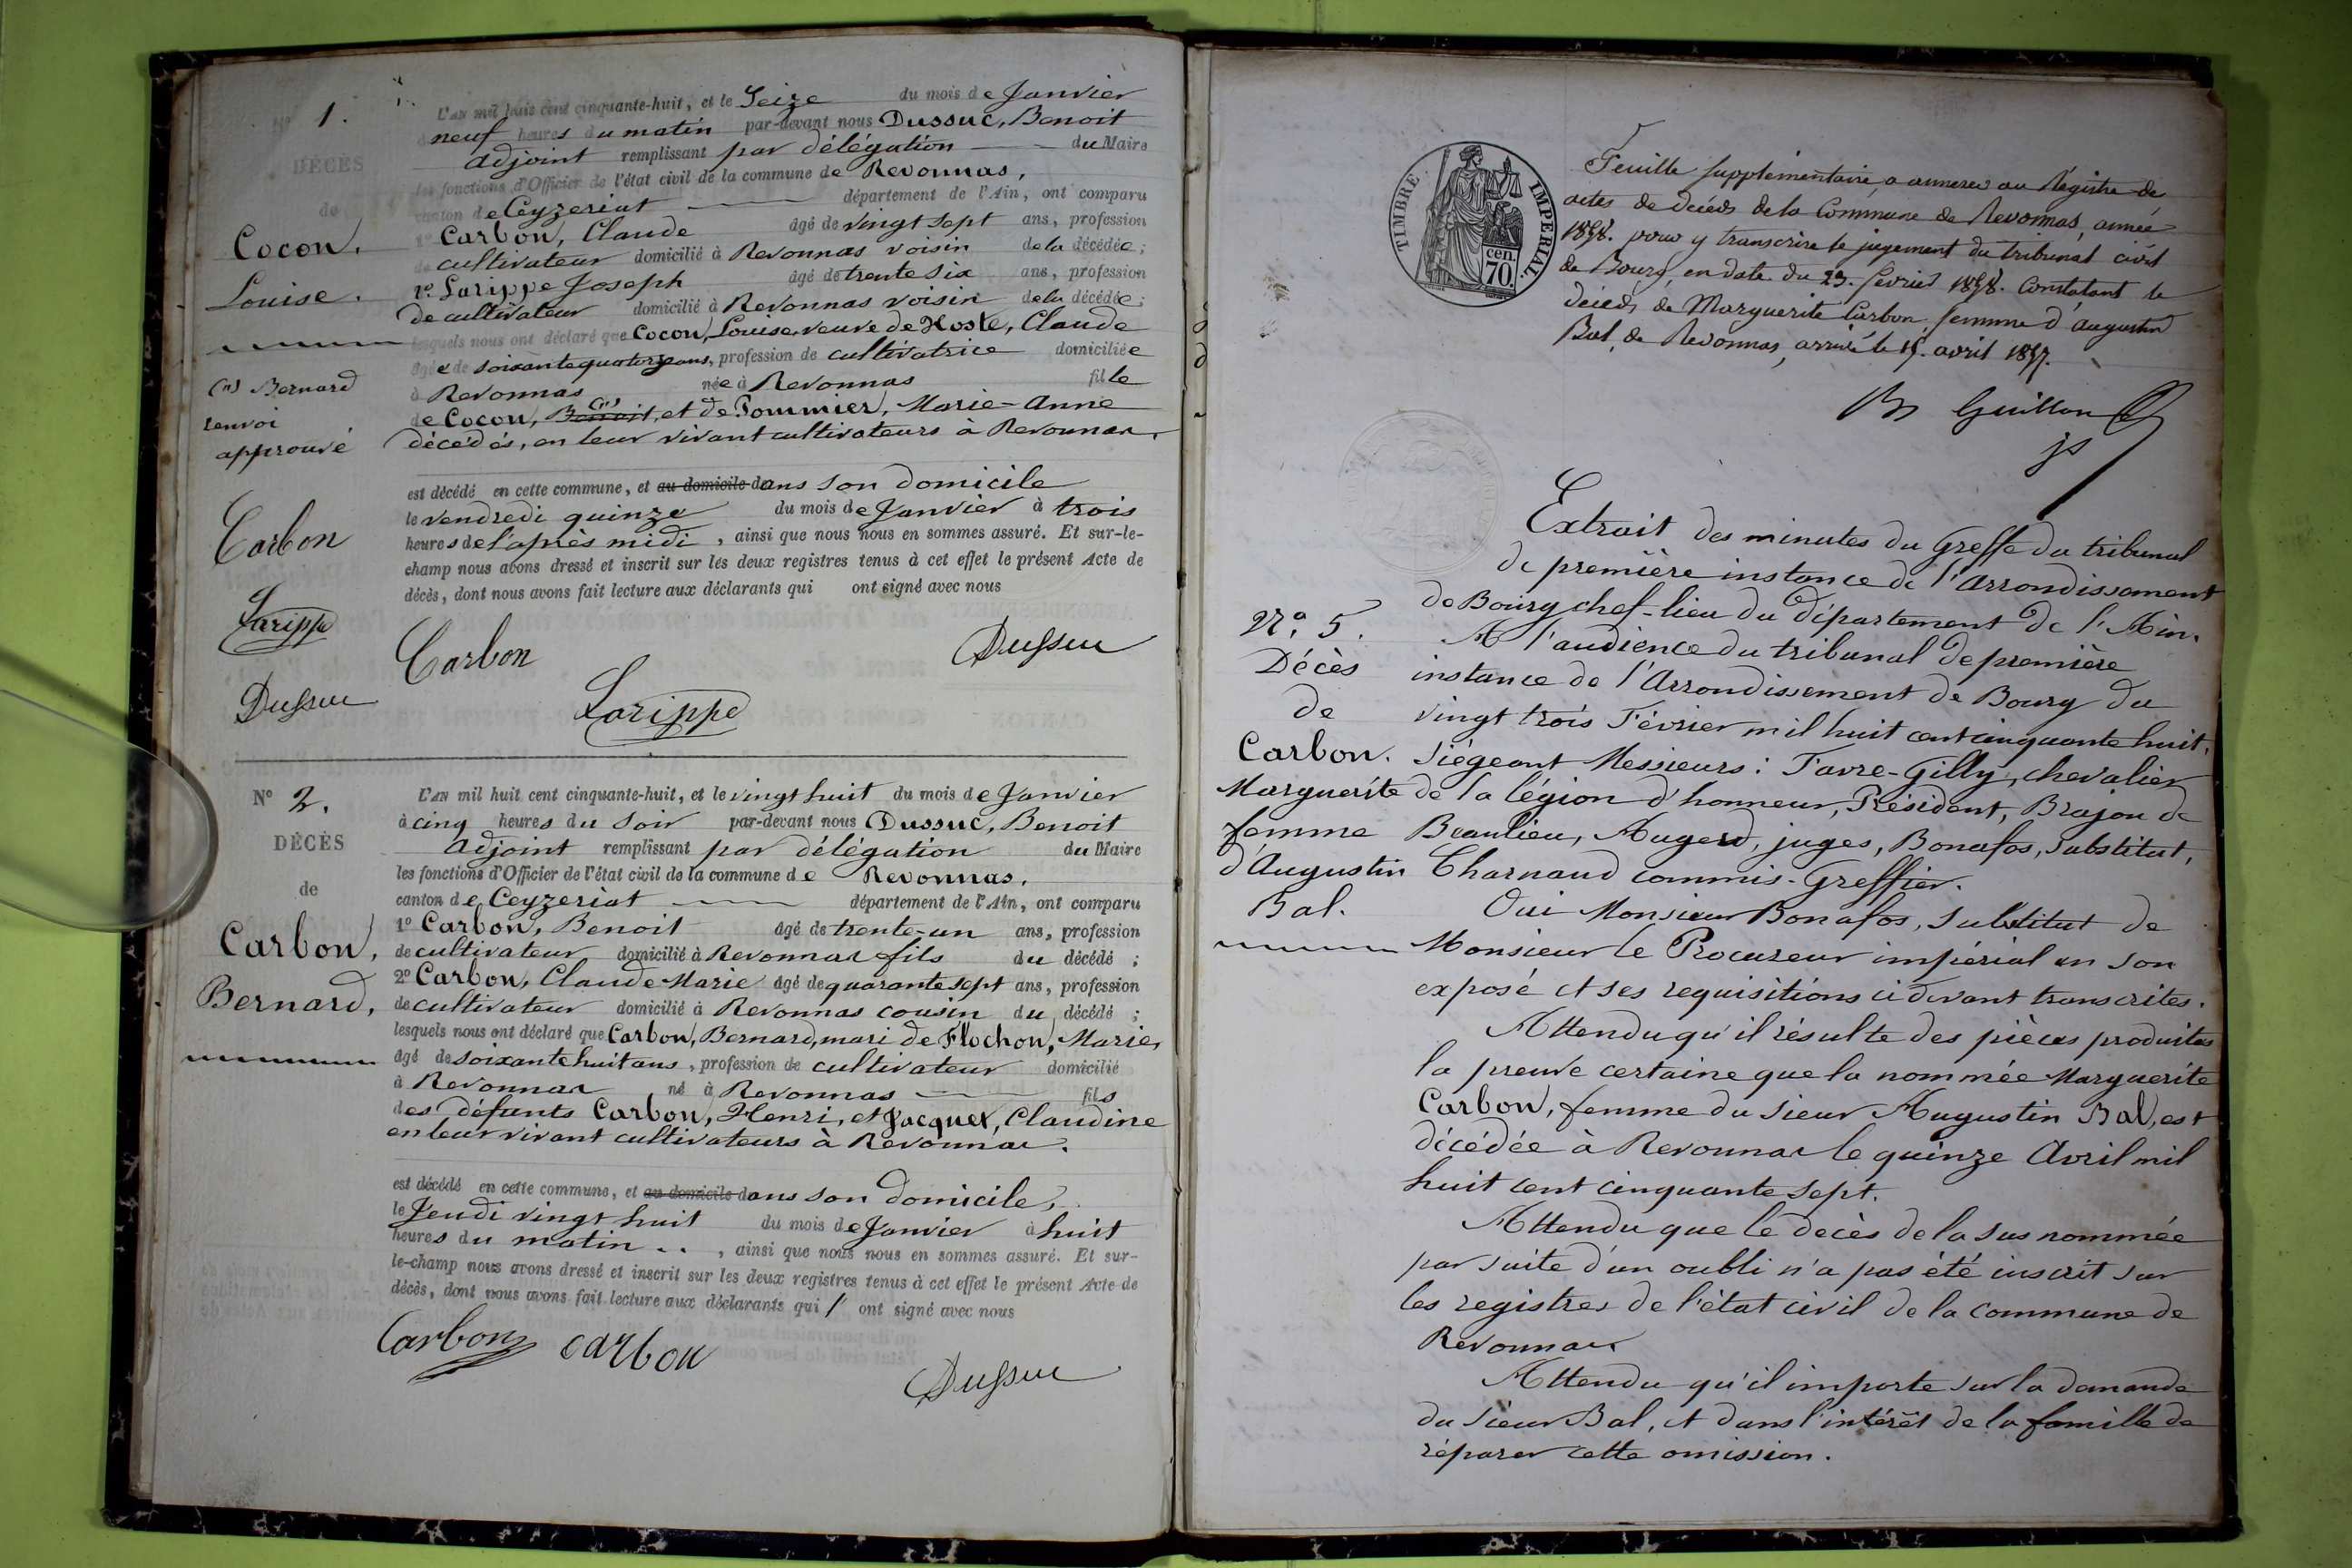 N° 1.
DÉCÈS
de
Cocon,
Louise.
(1) Bernard
renvoi
approuvé
Carbon
Larippe
Dussuc
L'AN mil huit cent cinquante-huit, et le Seize du mois de Janvier
à neuf heures du matin par-devant nous Dussuc, Benoit
adjoint remplissant par délégation du Maire
les fonctions d'Officier de l'état civil de la commune de Revonnas,
canton de Ceyzeriat département de l'Ain, ont comparu
1° Carbon, Claude âgé de vingt sept ans, profession
de cultivateur domicilié à Revonnas voisin de la décédée;
2° Larippe Joseph âgé de trente six ans, profession
de cultivateur domicilié à Revonnas voisin de la décédée;
lesquels nous ont déclaré que Cocon, Louise, veuve de Hoste, Claude
âgée de soixante quatorze ans, profession de cultivatrice domiciliée
à Revonnas née à Revonnas fille
de Cocon, Benoit, (1) et de Pommier, Marie-Anne
décédés, en leur vivant cultivateurs à Revonnas.
est décédé en cette commune, et au domicile dans son domicile
le vendredi quinze du mois de Janvier à trois
heures de l'après midi, ainsi que nous nous en sommes assuré. Et sur-le-
champ nous avons dressé et inscrit sur les deux registres tenus à cet effet le présent Acte de
décès, dont nous avons fait lecture aux déclarants qui ont signé avec nous
Carbon Larippe Dussuc
N° 2.
DÉCÈS
de
Carbon,
Bernard,
L'AN mil huit cent cinquante-huit, et le vingt huit du mois de Janvier
à cinq heures du soir par-devant nous Dussuc, Benoit
adjoint remplissant par délégation du Maire
les fonctions d'Officier de l'état civil de la commune de Revonnas.
canton de Ceyzeriat département de l'Ain, ont comparu
1° Carbon, Benoit âgé de trente-un ans, profession
de cultivateur domicilié à Revonnas fils du décédé;
2° Carbon, Claude Marie âgé de quarante sept ans, profession
de cultivateur domicilié à Revonnas cousin du décédé;
lesquels nous ont déclaré que Carbon, Bernard, mari de Flochon, Marie,
âgé de soixante huit ans, profession de cultivateur domicilié
à Revonnas né à Revonnas fils
des défunts Carbon, Henri, et Jacquet, Claudine
en leur vivant cultivateurs à Revonnas.
est décédé en cette commune, et au domicile dans son domicile,
le Jeudi vingt huit du mois de Janvier à huit
heures du matin.., ainsi que nous nous en sommes assuré. Et sur-
le-champ nous avons dressé et inscrit sur les deux registres tenus à cet effet le présent Acte de
décès, dont nous avons fait lecture aux déclarants qui ont signé avec nous
Carbon carbon Dussuc
TIMBRE IMPÉRIAL.
70 cen.
Feuille supplémentaire a annexer au Régistre de
actes de décès de la Commune de Revonnas, année
1858. pour y transcrire le jugement du tribunal civil
de Bourg, en date du 23. fevrier 1858. Constatant le
décès, de Marguerite Carbon, femme d'augustin
Bal, de Revonnas, arrivé le 15. avril 1857.
Guillon
N.° 5.
Décès
de
Carbon.
Marguerite
femme
d'Augustin
Bal.
Extrait des minutes du Greffe du tribunal
de première instance de l'Arrondissement
de Bourg chef-lieu du Département de l'Ain.
A l'audience du tribunal de première
instance de l'Arrondissement de Bourg du
vingt trois Février mil huit cent cinquante huit.
Siégeant Messieurs: Favre-Gilly, chevalier
de la légion d'honneur, Président, Brajon de
Beaulieu, Augerd, juges, Bonafos, substitut,
Charnaud commis-Greffier.
Oui Monsieur Bonafos, substitut de
Monsieur le Procureur impérial en son
exposé et ses requisitions ci devant transcrites.
Attendu qu'il résulte des pièces produites
la preuve certaine que la nommée Marguerite
Carbon, femme du sieur Augustin Bal, est
décédée à Revonnas le quinze Avril mil
huit cent cinquante sept.
Attendu que le décès de la sus nommée
par suite d'un oubli n'a pas été inscrit sur
les registres de l'état civil de la commune de
Revonnas.
Attendu qu'il importe sur la demande
du sieur Bal, et dans l'intérêt de la famille de
réparer cette omission.